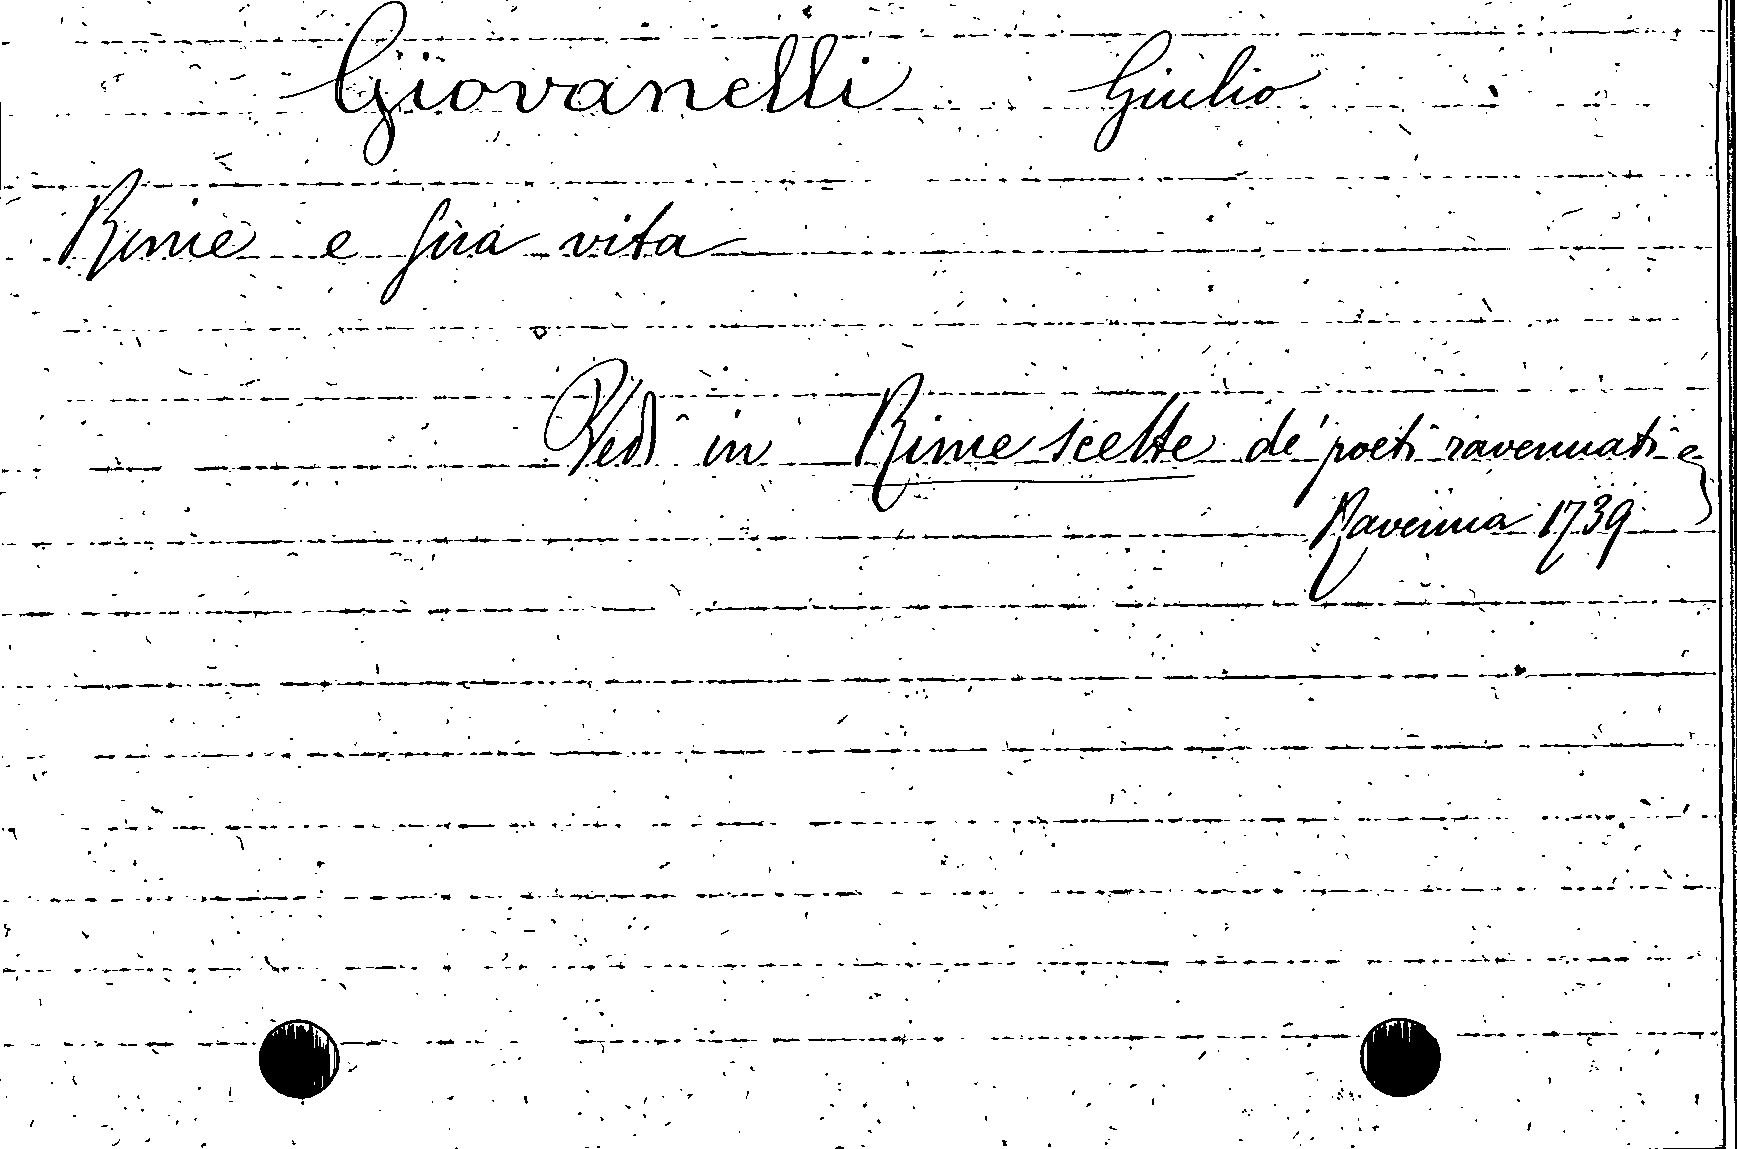 Giovanelli Giulio
Rime e sua vita
Vedi in Rime scelte de' poeti ravennati e
Ravenna 1739